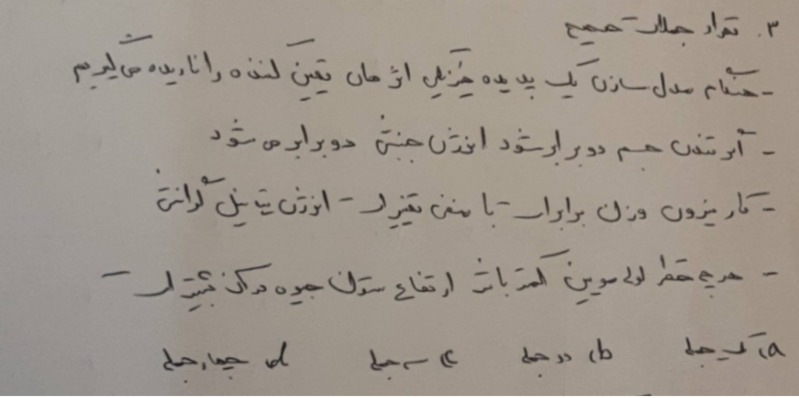 ۳. تعداد جملات صحیح
- هنگام مدل سازی یک پدیده فیزیکی اثر های تعیین کننده را نادیده می گیریم
- اگر تندی جسم دو برابر شود انرژی جنبشی دو برابر می شود
- کار نیروی وزن برابر است با منفی تغییرات انرژی پتانسیل گرانشی
- هر چه قطر لوله مویین کمتر باشد ارتفاع ستون جیوه در آن بیشتر است
a) یک جمله b) دو جمله c) سه جمله d) چهار جمله